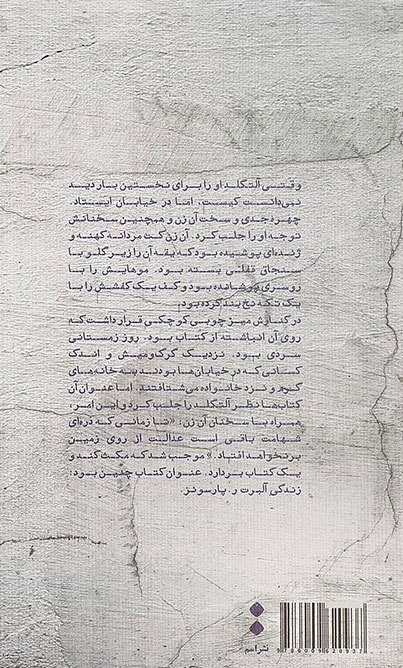 وقتی آلتگلد او را برای نخستین بار دید
نمی‌دانست کیست، اما در خیابان ایستاد.
چهره جدی و سخت آن زن و همچنین سخنانش
توجه او را جلب کرد. آن زن کت مردانه کهنه و
ژنده‌ای پوشیده بود که یقه آن را زیر گلو با
سنجاق قفلی بسته بود. موهایش را با
روسری پوشانده بود و کف یک کفشش را با
یک تکه نخ بند کرده بود.
در کنارش میز چوبی کوچکی قرار داشت که
روی آن انباشته از کتاب بود. روز زمستانی
سردی بود. نزدیک گرگ‌ومیش و اندک
کسانی که در خیابان‌ها بودند به خانه‌های
گرم و نزد خانواده می‌شتافتند. اما عنوان آن
کتاب‌ها نظر آلتگلد را جلب کرد و این امر،
همراه با سخنان آن زن: «تا زمانی که ذره‌ای
شهامت باقی است عدالت از روی زمین
برنخواهد افتاد.» موجب شد که مکث کند و
یک کتاب بردارد. عنوان کتاب چنین بود:
زندگی آلبرت ر. پارسونز.
نشر اسم
9786009620937